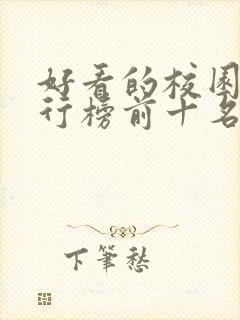 好看的校园
行榜前十名
下筆愁